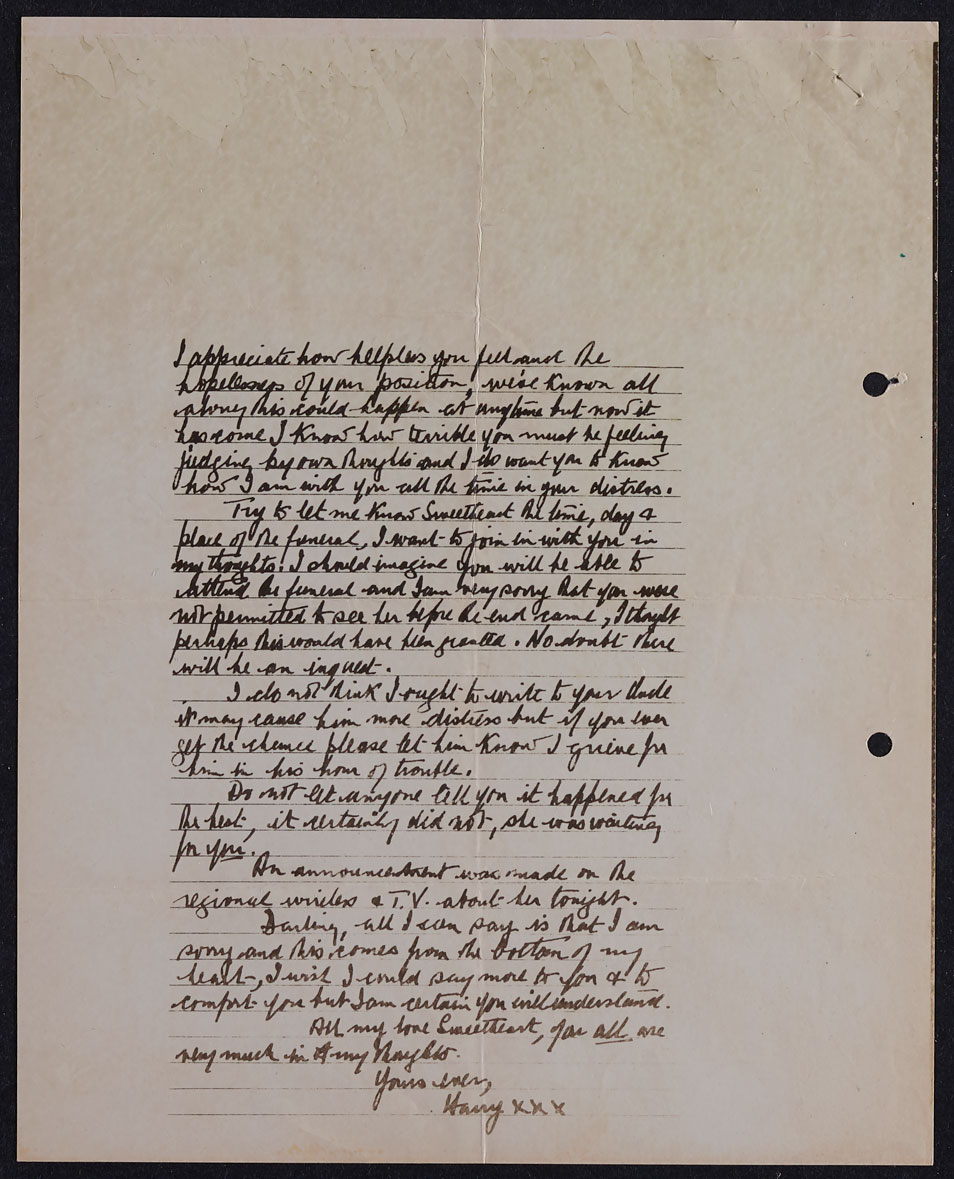 I appreciate how helpless you feel and the
hopelessness of your position, we've known all
along this could happen at anytime but now it
has come I know how terrible you must be feeling
judging by own thoughts and I do want you to know
how I am with you all the time in your distress.
Try to let me know Sweetheart the time, day &
place of the funeral, I want to join in with you in
my thoughts. I should imagine you will be able to
attend the funeral and I am very sorry that you were
not permitted to see her before the end came, I thought
perhaps this would have been granted. No doubt there
will be an inquest.
I do not think I ought to write to your Uncle
it may cause him more distress but if you ever
get the chance please let him know I grieve for
him in his hour of trouble.
Do not let anyone tell you it happened for
the best, it certainly did not, she was waiting
for you.
An announcement was made on the
regional wireless & T.V. about her tonight.
Darling, all I can say is that I am
sorry and this comes from the bottom of my
heart, I wish I could say more to you & to
comfort you but I am certain you will understand.
All my love Sweetheart, you all are
very much in my thoughts.
Yours ever,
Harry xxx